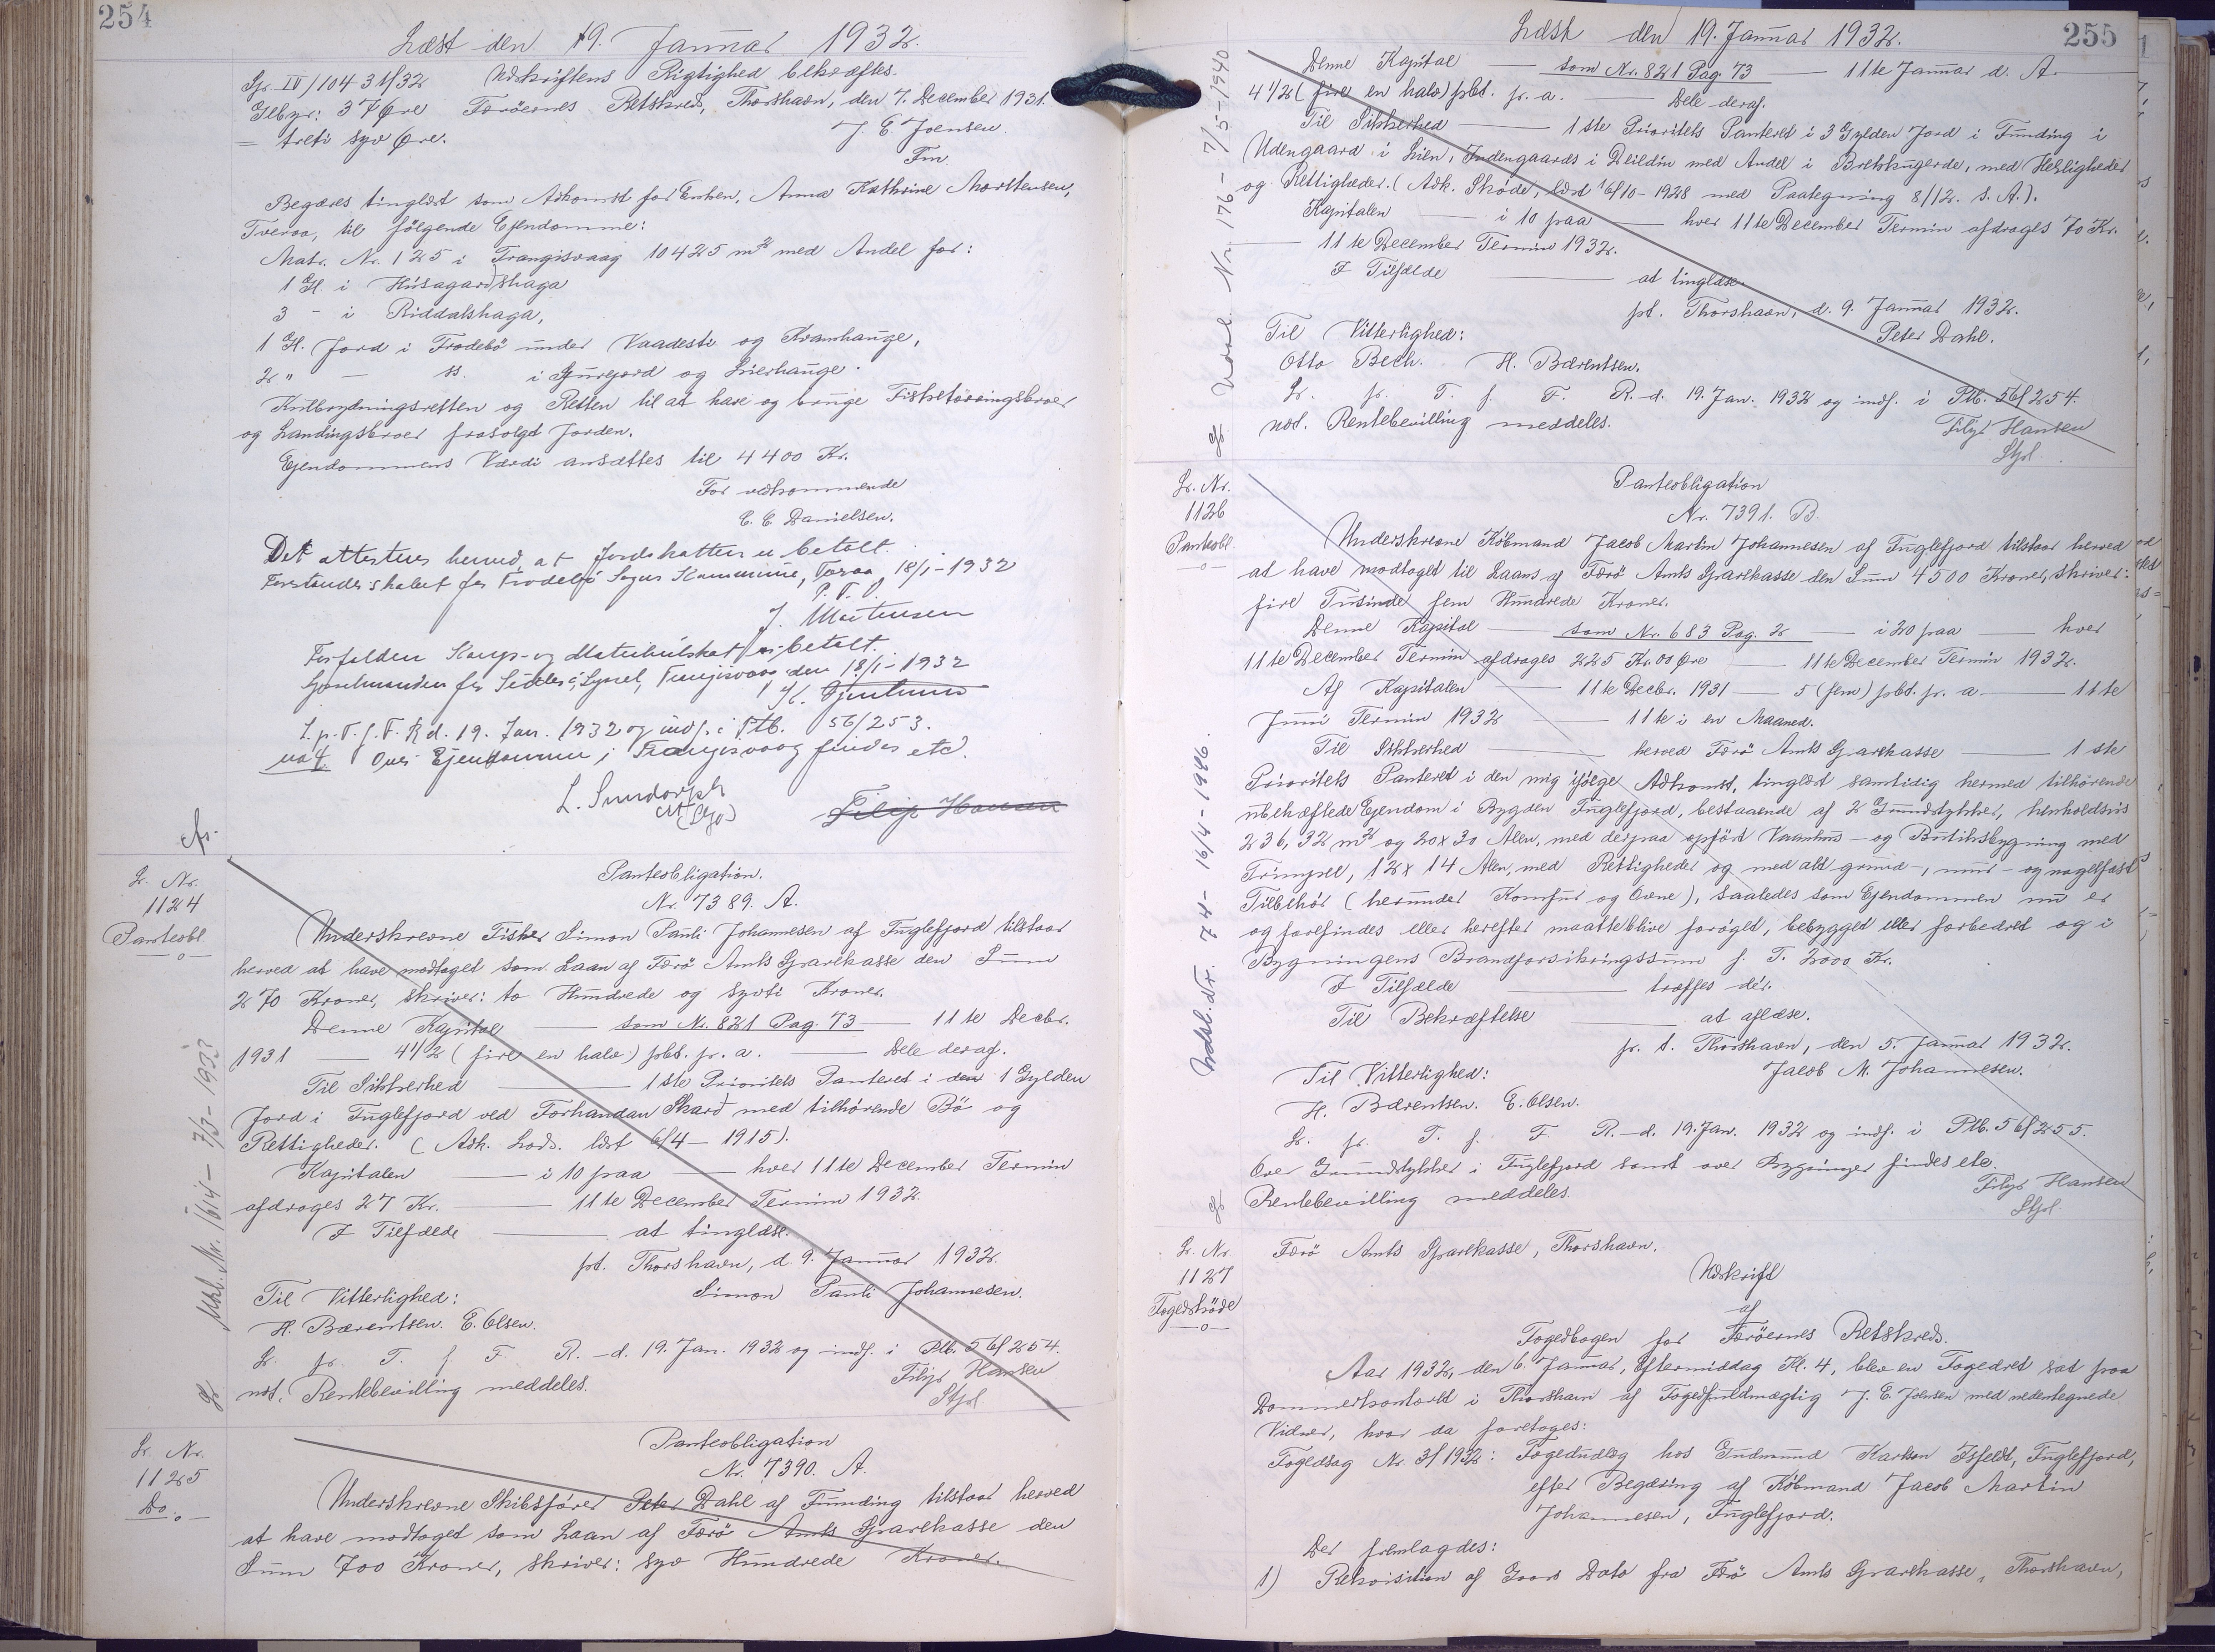 254
Læst den 19. Januar 1932.
Gr. IV/104-31/32 Udskriftens Rigtighed bekræftes.
Gebyr: 37 Øre Færöernes Retskreds, Thorshavn, den 7. December 1931.
= treti syv Øre. J. E. Joensen.
Fm.
Begæres tinglæst som Adkomst for Enken, Anna Kathrine Morttensen,
Tveraa, til følgende Ejendomme:
Matr. Nr. 125 i Frangisvaag 10425 m² med Andel for:
1 Gl. i Húsagardshaga
3 - i Riddalshaga,
1 Gl. Jord i Frodebö under Vaadesti og Kvamhauge,
2 " — ss. i Gurejord og Lierhauge.
Kulbrydningsretten og Retten til at have og bruge Fisketörringsbroer
og Landingsbroer frasolgt Jorden.
Ejendommens Værdi ansættes til 4400 Kr.
For vedkommende
E. E. Danielsen.
Det attesteres herved, at Jordskatten er betalt.
Forstanderskabet for Frodebø Sogns Kommune, Tvraa, 18/1-1932
P. F. V.
J. Mortensen
Forfalden Korps- og Matrikulskat er betalt.
Sysselmanden for Suderø Syssel, Trangisvaag, den 18/1-1932
L. p. T. f. F. R d. 19. Jan. 1932 og indf. i Ptb. 56/253.
not Over Ejendommen i Trangisvaag findes etc.
L. Sundorph
Filip Hansen
Lr. Nr.
1124
Panteobl.
Panteobligation.
Nr. 7389. A.
Underskrevne Fisker Simon Pauli Johannesen af Fuglefjord tilstaar
herved at have modtaget som Laan af Færö Amts Sparekasse den Sum
270 Kroner, skriver: to Hundrede og syvti Kroner.
Denne Kapital — som Nr. 821 Pag. 73 — 11te Decbr.
1931 — 4 1/2 (fire en halv) pCt. p. a. — Dele deraf.
Til Sikkerhed — 1ste Prioritets Panteret i den 1 Gylden
Jord i Fuglefjord ved Forhandan Skard med tilhörende Bö og
Rettigheder. (Adk. Lods. læst 6/4-1915).
Kapitalen — i 10 paa — hver 11te December Termin
afdrages 27 Kr. — 11te December Termin 1932.
I Tilfælde — at tinglæse.
pt. Thorshavn, d. 9. Januar 1932.
Til Vitterlighed: Simon Pauli Johannesen.
H. Bærentsen. E. Olsen.
L. p. T. f. F. R.-d. 19. Jan. 1932 og indf. i Ptb. 56/254.
not. Rentebevilling meddeles. Filip Hansen
Stfol.
Udsl. Nr. 164 - 7/3-1933
Lr. Nr.
1125
Do.
Panteobligation
Nr. 7390. A.
Underskrevne Skibsförer Peter Dahl af Funding tilstaar herved
at have modtaget som Laan af Færö Amts Sparekasse den
Sum 700 Kroner, skriver: syv Hundrede Kroner.
Læst den 19. Januar 1932. 255
Denne Kapital — som Nr. 821 Pag. 73 — 11te Januar d. A.
4 1/2 (fire en halv) pCt. p. a. — Dele deraf.
Til Sikkerhed — 1ste Prioritets Panteret i 3 Gylden Jord i Funding i
Udengaard i Lien, Indengaards i Deildin med Andel i Brekkugerde, med Herligheder
og Rettigheder. (Adk. Sköde, læst 16/10-1928 med Paategning 8/12. s. A.).
Kapitalen — i 10 paa — hver 11te December Termin afdrages 70 Kr.
— 11te December Termin 1932.
I Tilfælde — at tinglæse.
pt. Thorshavn, d. 9. Januar 1932.
Til Vitterlighed: Peter Dahl.
Otto Bech. H. Bærentsen.
L. p. T. f. F. R.-d. 19. Jan. 1932 og indf. i Ptb. 56/254.
not. Rentebevilling meddeles. Filip Hansen
Stfol.
Udsl. Nr. 176 - 7/5-1940
Lr. Nr.
1126
Panteobl.
Panteobligation
Nr. 7391. B.
Underskrevne Köbmand Jacob Martin Johannesen af Fuglefjord tilstaar herved
at have modtaget til Laans af Færö Amts Sparekasse den Sum 4500 Kroner, skriver:
fire Tusinde fem Hundrede Kroner.
Denne Kapital — som Nr. 683 Pag. 2 — i 20 paa — hver
11te December Termin afdrages 225 Kr. 00 Øre — 11te December Termin 1932.
Af Kapitalen — 11te Decbr. 1931 — 5 (fem) pCt. p. a. — 11te
Juni Termin 1932 — 11te i en Maaned.
Til Sikkerhed — herved Færö Amts Sparekasse — 1ste
Prioritets Panteret i den mig ifölge Adkomst, tinglæst samtidig hermed tilhörende
ubehæftede Ejendom i Bygden Fuglefjord, bestaaende af 2 Grundstykker, henholdsvis
236,32 m² og 20x30 Alen, med derpaa opfört Vaanhus- og Butiksbygning med
Frimpel, 12x14 Alen, med Rettigheder og med alt grund-, mur- og nagelfast
Tilbehör (herunder Komfur og Ovne), saaledes som Ejendommen nu er
og forefindes eller herefter maatte blive foröget, bebygget eller forbedret og i
Bygningens Brandforsikringssum f. T. 2000 Kr.
I Tilfælde — træffes dér.
Til Bekræftelse — at aflæse.
p. t. Thorshavn, den 5. Januar 1932.
Til Vitterlighed: Jacob M. Johannesen.
H. Bærentsen. E. Olsen.
L. p. T. f. F. R.-d. 19. Jan. 1932 og indf. i Ptb. 56/255.
Over Grundstykker i Fuglefjord samt over Bygninger findes etc.
Rentebevilling meddeles. Filip Hansen
Stfol.
Udsl. Nr. 74 - 16/4-1946.
Lr. Nr.
1127
Fogedsköde
Færö Amts Sparekasse, Thorshavn.
Udskrift
af
Fogedbogen for Færöernes Retskreds.
Aar 1932, den 6. Januar, Eftermiddag Kl. 4, blev en Fogedret sat paa
Dommerkontoret i Thorshavn af Fogedfuldmægtig J. E. Joensen med nedentegnede
Vidner, hvor da foretoges:
Fogedsag Nr. 3/1932: Fogedudlæg hos Gudmund Karlson Isfeldt, Fuglefjord,
efter Begæring af Köbmand Jacob Martin
Johannesen, Fuglefjord.
Der fremlagdes:
1) Rekvisition af Gaars Dato fra Færö Amts Sparekasse, Thorshavn,